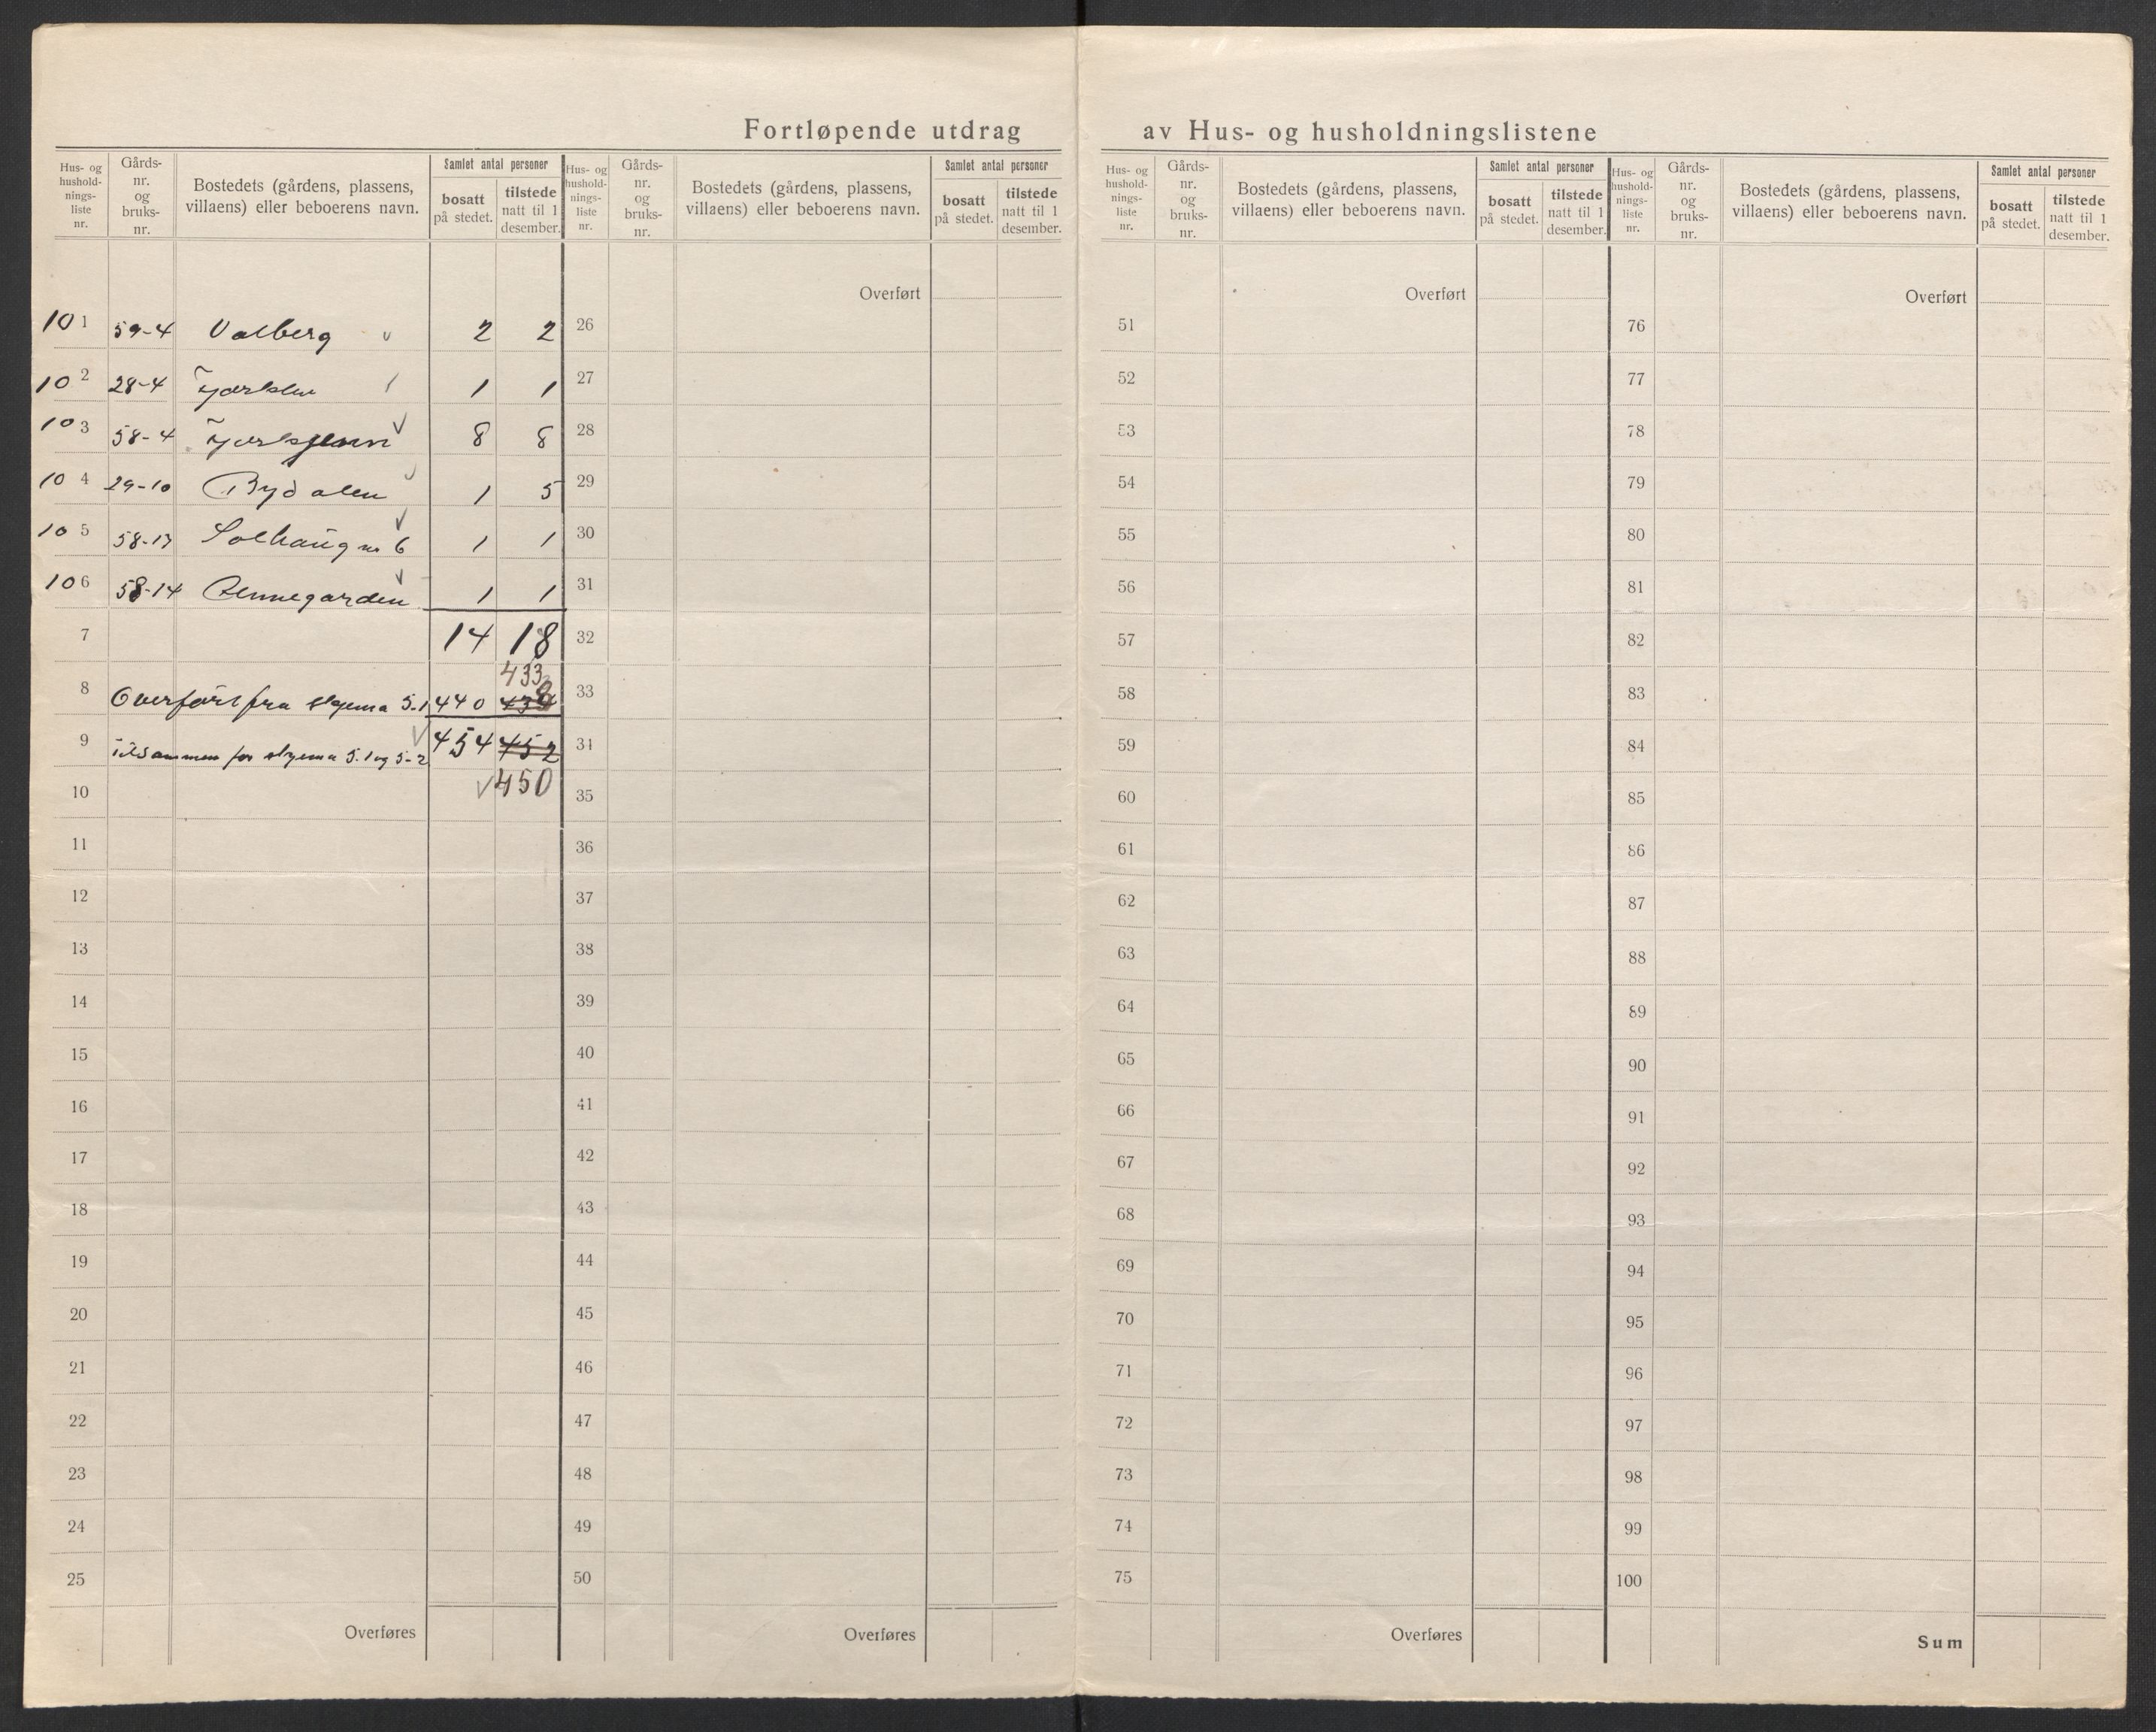 Fortløpende utdrag av Hus- og husholdningslistene
Hus- og hushold-nings-liste nr. Gårds-nr. og bruks-nr. Bostedets (gårdens, plassens, villaens) eller beboerens navn. Samlet antal personer bosatt på stedet. tilstede natt til 1 desember.
Hus- og hushold-nings-liste nr. Gårds-nr. og bruks-nr. Bostedets (gårdens, plassens, villaens) eller beboerens navn. Samlet antal personer bosatt på stedet. tilstede natt til 1 desember.
Hus- og hushold-nings-liste nr. Gårds-nr. og bruks-nr. Bostedets (gårdens, plassens, villaens) eller beboerens navn. Samlet antal personer bosatt på stedet. tilstede natt til 1 desember.
Hus- og hushold-nings-liste nr. Gårds-nr. og bruks-nr. Bostedets (gårdens, plassens, villaens) eller beboerens navn. Samlet antal personer bosatt på stedet. tilstede natt til 1 desember.
101 59-4 Valberg 2 2
102 28-4 1 1
103 58-4 8 8
104 29-10 Bydalen 1 5
105 58-13 Solhaug nr 6 1 1
106 58-14 1 1
7 14 18
433
8 Overført fra skjema 5-1 440
9 Tilsammen for skjema 5-1 og 5-2 454 452
10 450
11
12
13
14
15
16
17
18
19
20
21
22
23
24
25
Overføres
Overført
26
27
28
29
30
31
32
33
34
35
36
37
38
39
40
41
42
43
44
45
46
47
48
49
50
Overføres
Overført
51
52
53
54
55
56
57
58
59
60
61
62
63
64
65
66
67
68
69
70
71
72
73
74
75
Overføres
Overført
76
77
78
79
80
81
82
83
84
85
86
87
88
89
90
91
92
93
94
95
96
97
98
99
100
Sum